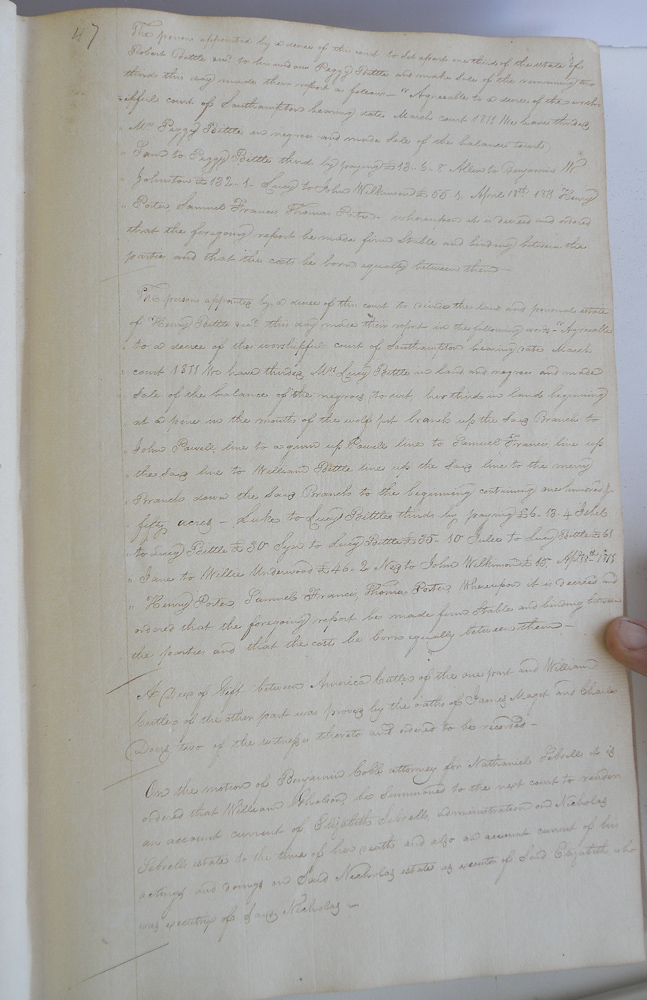 47
The persons appointed by a decree of this court to set apart one third of the estate of
Robert Bittle decd to his widow Peggy Bittle and make Sale of the remaining two
thirds this day made their report as follows "Agreeable to a decree of the worshi
pful court of Southampton bearing date March court 1811 We have thirded
Mrs Peggy Bittle in negroes and made Sale of the balance
to Peggy Bittle thirds by paying £13-6-8 Allen to Benjamin W
Johnston £132-1. Lucy to John Wilkinson £55-1. April 18th 1811 Henry
Porter Samuel Francis Thomas Porter whereupon it is decreed and ordered
that the foregoing report be made firm Stable and binding between the
parties and that the costs be born equally between them —
The persons appointed by a decree of this court to divide the land and personal estate
of Henry Bittle decd this day made their report in the following words "Agreeable
to a decree of the worshipful court of Southampton bearing date March
court 1811 We have thirded Mrs Lucy Bittle in land and negroes and made
Sale of the balance of the negroes to wit, her thirds in lands beginning
at a pine in the mouth of the wolf pit branch up the Said Branch to
John Powell line to a gum up Powell line to Samuel Francis line up
the Said line to William Bittle line up the Said line to the
Branch down the Said Branch to the beginning containing one hundred &
fifty acres — Luke to Lucy Bittles thirds by paying £6.13.4
to Lucy Bittle £30 to Lucy Bittle £55-10 to Lucy Bittle £61
Jane to Willie Underwood £46-2 Ned to John Wilkinson April 18th 1811
Henry Porter, Samuel Francis, Thomas Porter, Whereupon it is decreed and
ordered that the foregoing report be made firm Stable and binding between
the parties and that the costs be born equally between them —
A Deed of Gift between America Cutler of the one part and William
Cutler of the other part was proved by the oaths of James Maget and Charles
two of the witnesses thereto and ordered to be recorded —
On the motion of Benjamin Cobb attorney for Nathaniel Sebrell it is
ordered that William Nicholson, be Summoned to the next court to render
an account current of Elizabeth Sebrells administration on Nicholas
Sebrells estate to the time of her death and also an account current of his
actings and doings on Said Nicholas estate as executor of Said Elizabeth who
was executrix of Said Nicholas —